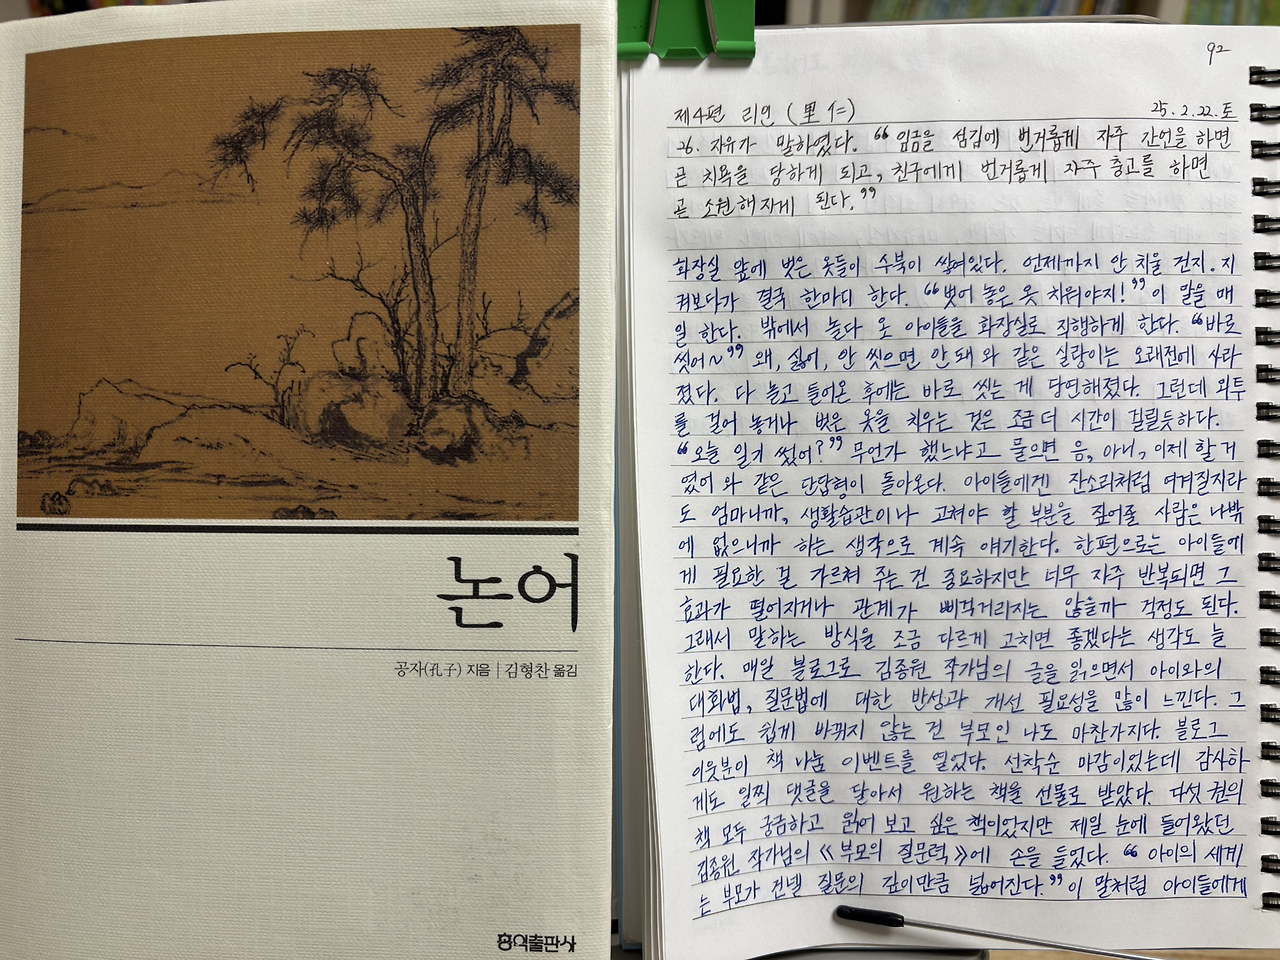 논어
공자(孔子) 지음 | 김형찬 옮김
홍익출판사
92
제4편 리인 (里仁) 25.2.22.토
26. 자유가 말하였다. "임금을 섬김에 번거롭게 자주 간언을 하면
곧 치욕을 당하게 되고, 친구에게 번거롭게 자주 충고를 하면
곧 소원해지게 된다."
화장실 앞에 벗은 옷들이 수북이 쌓여있다. 언제까지 안 치울 건지. 지
켜보다가 결국 한마디 한다. "벗어 놓은 옷 치워야지!" 이 말을 매
일 한다. 밖에서 놀다 온 아이들을 화장실로 직행하게 한다. "바로
씻어~" 왜, 싫어, 안 씻으면 안돼 와 같은 실랑이는 오래전에 사라
졌다. 다 놀고 들어온 후에는 바로 씻는 게 당연해졌다. 그런데 외투
를 걸어 놓거나 벗은 옷을 치우는 것은 조금 더 시간이 걸릴듯하다.
"오늘 일기 썼어?" 무언가 했느냐고 물으면 음, 아니, 이제 할 거
였어 와 같은 단답형이 돌아온다. 아이들에겐 잔소리처럼 여겨질지라
도 엄마니까, 생활습관이나 고쳐야 할 부분을 짚어줄 사람은 나밖
에 없으니까 하는 생각으로 계속 얘기한다. 한편으로는 아이들에
게 필요한 걸 가르쳐 주는 건 중요하지만 너무 자주 반복되면 그
효과가 떨어지거나 관계가 삐걱거리지는 않을까 걱정도 된다.
그래서 말하는 방식을 조금 다르게 고치면 좋겠다는 생각도 늘
한다. 매일 블로그로 김종원 작가님의 글을 읽으면서 아이와의
대화법, 질문법에 대한 반성과 개선 필요성을 많이 느낀다. 그
럼에도 쉽게 바뀌지 않는 건 부모인 나도 마찬가지다. 블로그
이웃분이 책 나눔 이벤트를 열었다. 선착순 마감이었는데 감사하
게도 일찍 댓글을 달아서 원하는 책을 선물로 받았다. 다섯 권의
책 모두 궁금하고 읽어 보고 싶은 책이었지만 제일 눈에 들어왔던
김종원 작가님의 《부모의 질문력》에 손을 들었다. "아이의 세계
는 부모가 건넬 질문의 깊이만큼 넓어진다." 이 말처럼 아이들에게